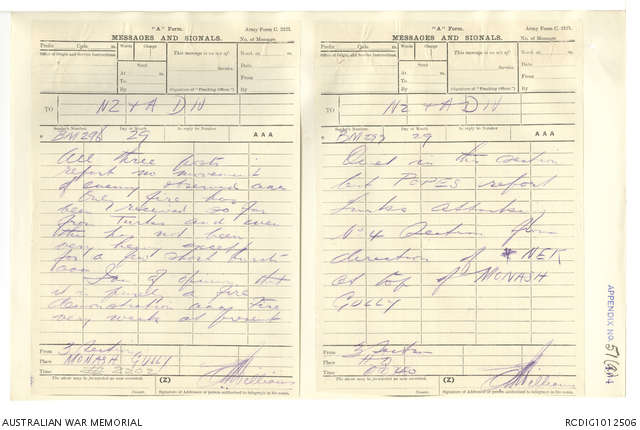 "A" Form. Army Form C. 2121.
MESSAGES AND SIGNALS. No. of Message
Prefix Code m. Words Charge
Office of Origin and Service Instructions.
Sent
At m.
To
By
This message is on a/c of:
Service.
(Signature of "Franking Officer.")
Recd. at m.
Date
From
By
TO NZ + A DIV
Sender's Number. Day of Month In reply to Number AAA
29
All three posts
report no movement
of enemy observed aaa
fire has
been received so far
from Turks and even
this has not been
very heavy except
for a few short bursts
aaa
I am of opinion that
it is a fire
demonstration aaa fire
very weak at present
From 3 Section
Place MONASH GULLY
Time 2202
The above may be forwarded as now corrected. (Z)
Censor. Signature of Addressor or person authorised to telegraph in his name.
"A" Form. Army Form C. 2121.
MESSAGES AND SIGNALS. No. of Message
Prefix Code m. Words Charge
Office of Origin and Service Instructions.
Sent
At m.
To
By
This message is on a/c of:
Service.
(Signature of "Franking Officer.")
Recd. at m.
Date
From
By
TO NZ + A DIV
Sender's Number. Day of Month In reply to Number AAA
BM297 29
Quiet in this section
but POPES report
Turks attacked
No 4 Section from
direction of NEK
at top of MONASH
GULLY
From 3 Section
Place
Time
The above may be forwarded as now corrected. (Z)
Censor. Signature of Addressor or person authorised to telegraph in his name.
APPENDIX No.
AUSTRALIAN WAR MEMORIAL RCDIG1012506